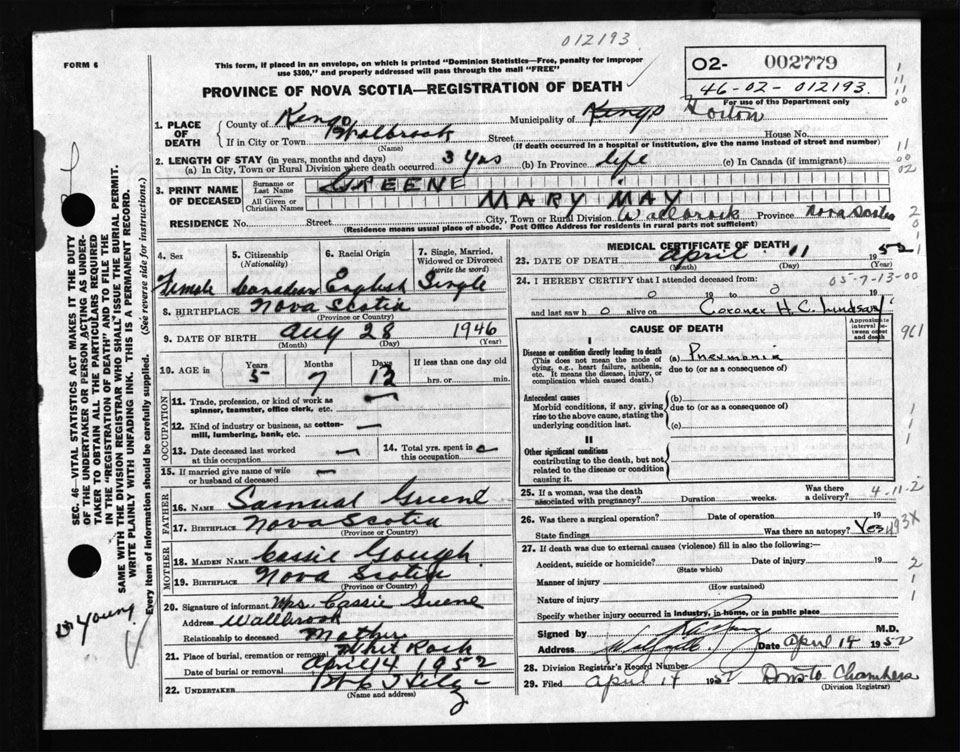 012193
FORM 6
This form, if placed in an envelope, on which is printed "Dominion Statistics—Free, penalty for improper
use $300," and properly addressed will pass through the mail "FREE"
O2- 002779
46-02-012193.
For use of the Department only
PROVINCE OF NOVA SCOTIA—REGISTRATION OF DEATH
1. PLACE OF DEATH
County of Kings Municipality of Kings Horton
If in City or Town Street House No.
(Name) (If death occurred in a hospital or institution, give the name instead of street and number)
2. LENGTH OF STAY (in years, months and days)
(a) In City, Town or Rural Division where death occurred 3 yrs (b) In Province life (c) In Canada (if immigrant)
3. PRINT NAME OF DECEASED
Surname or Last Name GREENE
All Given or Christian Names MARY MAY
RESIDENCE No. Street City, Town or Rural Division Wallbrook Province Nova Scotia
(Residence means usual place of abode. Post Office Address for residents in rural parts not sufficient)
4. Sex Female
5. Citizenship (Nationality) Canadian
6. Racial Origin English
7. Single, Married, Widowed or Divorced (write the word) Single
8. BIRTHPLACE Nova Scotia
(Province or Country)
9. DATE OF BIRTH Aug 28 1946
(Month) (Day) (Year)
10. AGE in Years 5 Months 7 Days 13 If less than one day old
hrs. or min.
OCCUPATION
11. Trade, profession, or kind of work as
spinner, teamster, office clerk, etc. —
12. Kind of industry or business, as cotton-
mill, lumbering, bank, etc. —
13. Date deceased last worked
at this occupation —
14. Total yrs. spent in
this occupation
15. If married give name of wife
or husband of deceased —
FATHER
16. NAME Samual Greene
17. BIRTHPLACE Nova Scotia
(Province or Country)
MOTHER
18. MAIDEN NAME Cassie Gough
19. BIRTHPLACE Nova Scotia
(Province or Country)
20. Signature of informant Mrs. Cassie Greene
Address Wallbrook
Relationship to deceased Mother
21. Place of burial, cremation or removal Whit Rock
Date of burial or removal April 14 1952
22. UNDERTAKER
(Name and address)
MEDICAL CERTIFICATE OF DEATH
23. DATE OF DEATH April 11 1952
(Month) (Day) (Year)
24. I HEREBY CERTIFY that I attended deceased from: 05-7-13-00
0 19 to 0
and last saw h 0 alive on Coroner H.C. Lindsay
CAUSE OF DEATH
Approximate interval between onset and death
961
I
Disease or condition directly leading to death (a) Pneumonia
(This does not mean the mode of due to (or as a consequence of)
dying, e.g., heart failure, asthenia,
etc. It means the disease, injury, or
complication which caused death.)
Antecedent causes (b)
Morbid conditions, if any, giving due to (or as a consequence of)
rise to the above cause, stating the
underlying condition last. (c)
II
Other significant conditions
contributing to the death, but not
related to the disease or condition
causing it.
25. If a woman, was the death
associated with pregnancy? Duration weeks. Was there a delivery? 4-11-2
26. Was there a surgical operation? Date of operation 19
State findings Was there an autopsy? Yes 493X
27. If death was due to external causes (violence) fill in also the following:—
Accident, suicide or homicide? Date of injury 19
(State which)
Manner of injury
(How sustained)
Nature of injury
Specify whether injury occurred in industry, in home, or in public place
Signed by M.D.
Address Date April 14 1952
28. Division Registrar's Record Number
29. Filed April 17 1952 Chambers
(Division Registrar)
SEC. 46—VITAL STATISTICS ACT MAKES IT THE DUTY
OF THE UNDERTAKER OR PERSON ACTING AS UNDER-
TAKER TO OBTAIN ALL THE PARTICULARS REQUIRED
IN THE "REGISTRATION OF DEATH" AND TO FILE THE
SAME WITH THE DIVISION REGISTRAR WHO SHALL ISSUE THE BURIAL PERMIT.
WRITE PLAINLY WITH UNFADING INK. THIS IS A PERMANENT RECORD.
Every item of information should be carefully supplied. (See reverse side for instructions.)
Dr Young